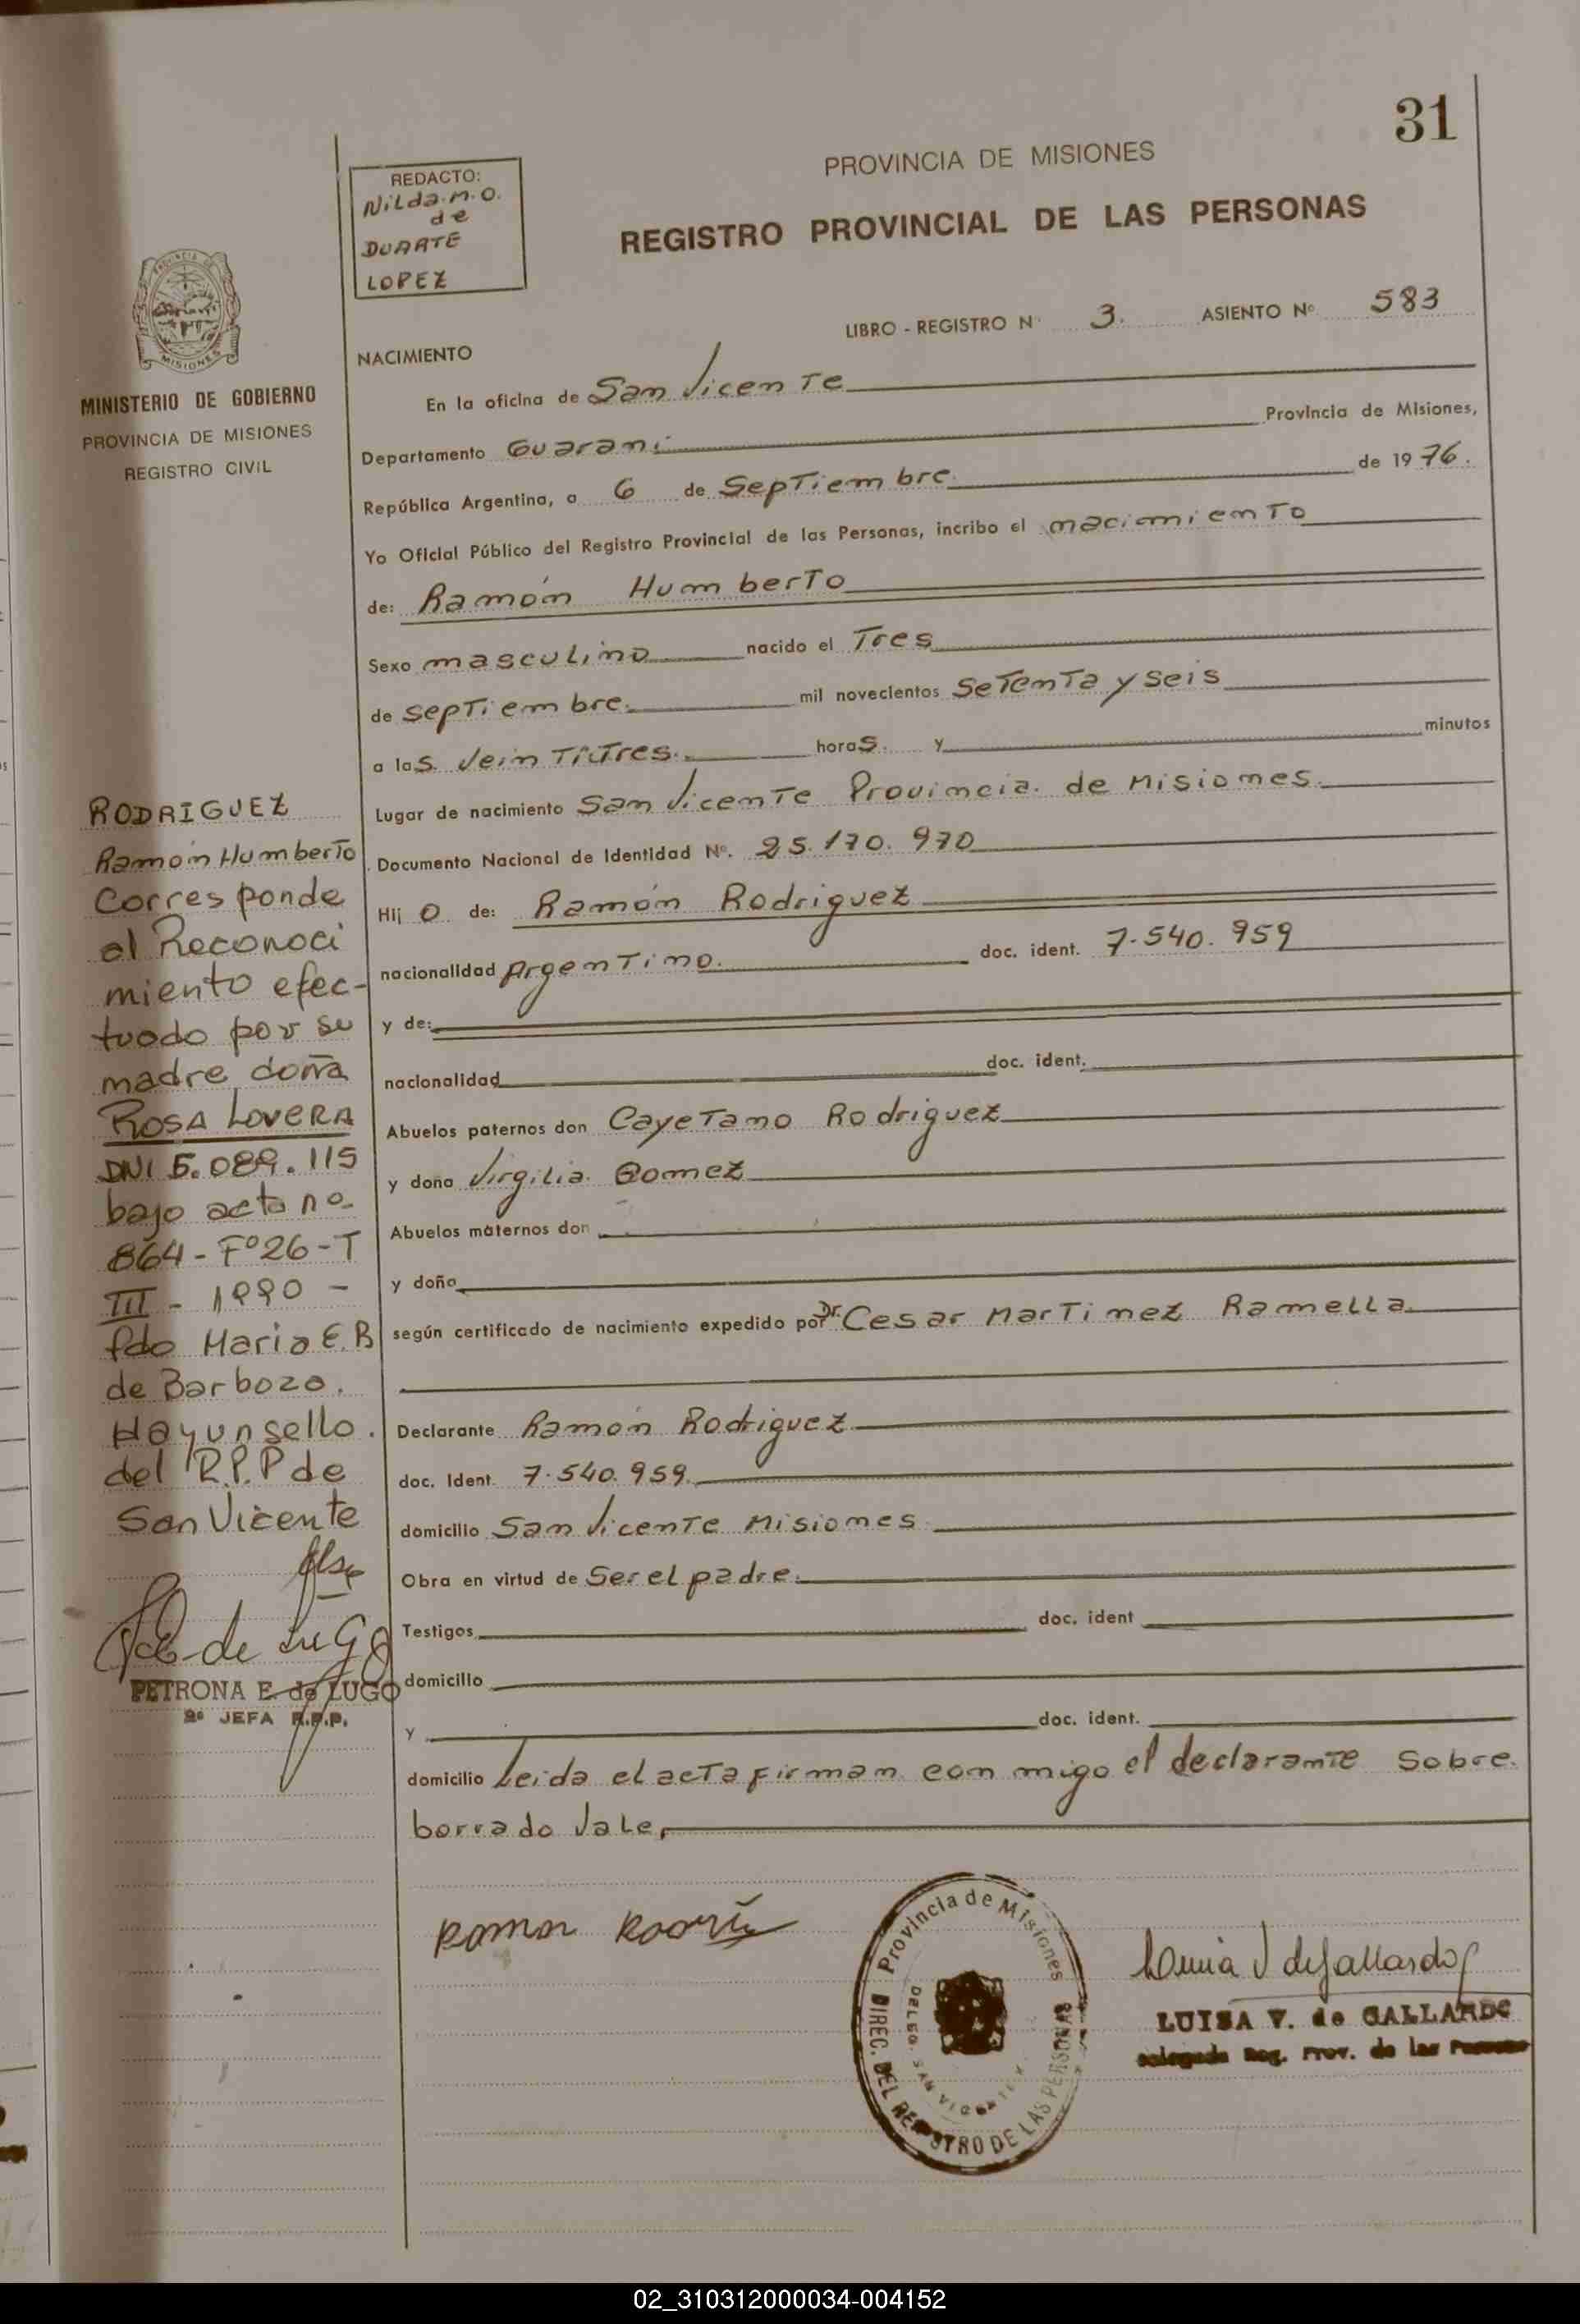 31
PROVINCIA DE MISIONES
REGISTRO PROVINCIAL DE LAS PERSONAS
REDACTO:
Nilda.M.O.
de
DUARTE
LOPEZ
PROVINCIA DE
MISIONES
MINISTERIO DE GOBIERNO
PROVINCIA DE MISIONES
REGISTRO CIVIL
LIBRO - REGISTRO N° 3. ASIENTO N° 583
NACIMIENTO
En la oficina de San Vicente
Departamento Guarani Provincia de Misiones,
República Argentina, a 6 de Septiembre de 1976.
Yo Oficial Público del Registro Provincial de las Personas, incribo el nacimiento
de: Ramón Humberto
Sexo masculino nacido el Tres
de septiembre. mil novecientos Setenta y seis
a las Veintitres. horas y minutos
Lugar de nacimiento San Vicente Provincia de Misiones.
Documento Nacional de Identidad N°. 25.170.970
Hijo de: Ramón Rodriguez
nacionalidad Argentino. doc. ident. 7.540.959
y de:
nacionalidad doc. ident.
Abuelos paternos don Cayetano Rodriguez
y doña Virgilia Gomez
Abuelos maternos don
y doña
según certificado de nacimiento expedido por Dr. Cesar Martinez Ramella
Declarante Ramón Rodriguez
doc. Ident. 7.540.959.
domicilio San Vicente Misiones
Obra en virtud de Ser el padre.
Testigos doc. ident
domicilio
y doc. ident.
domicilio Leida el acta firman conmigo el declarante Sobre
borrado Vale,
RODRIGUEZ
Ramón Humberto
Corresponde
al Reconoci
miento efec-
tuado por su
madre doña
ROSA LOVERA
DNI 5.089.115
bajo acta nº
864 - Fº26 - T
III - 1990 -
fdo Maria E. B
de Barbozo.
Hay un sello.
del R.P.P de
San Vicente
de Lugo
PETRONA E. de LUGO
2ª JEFA R.P.P.
Ramon
Provincia de Misiones
DIREC. DEL REGISTRO DE LAS PERSONAS
DELEG. SAN VICENTE
Luisa V de Gallardo
LUISA V. de GALLARDO
Delegada Reg. Prov. de las Personas
02_310312000034-004152